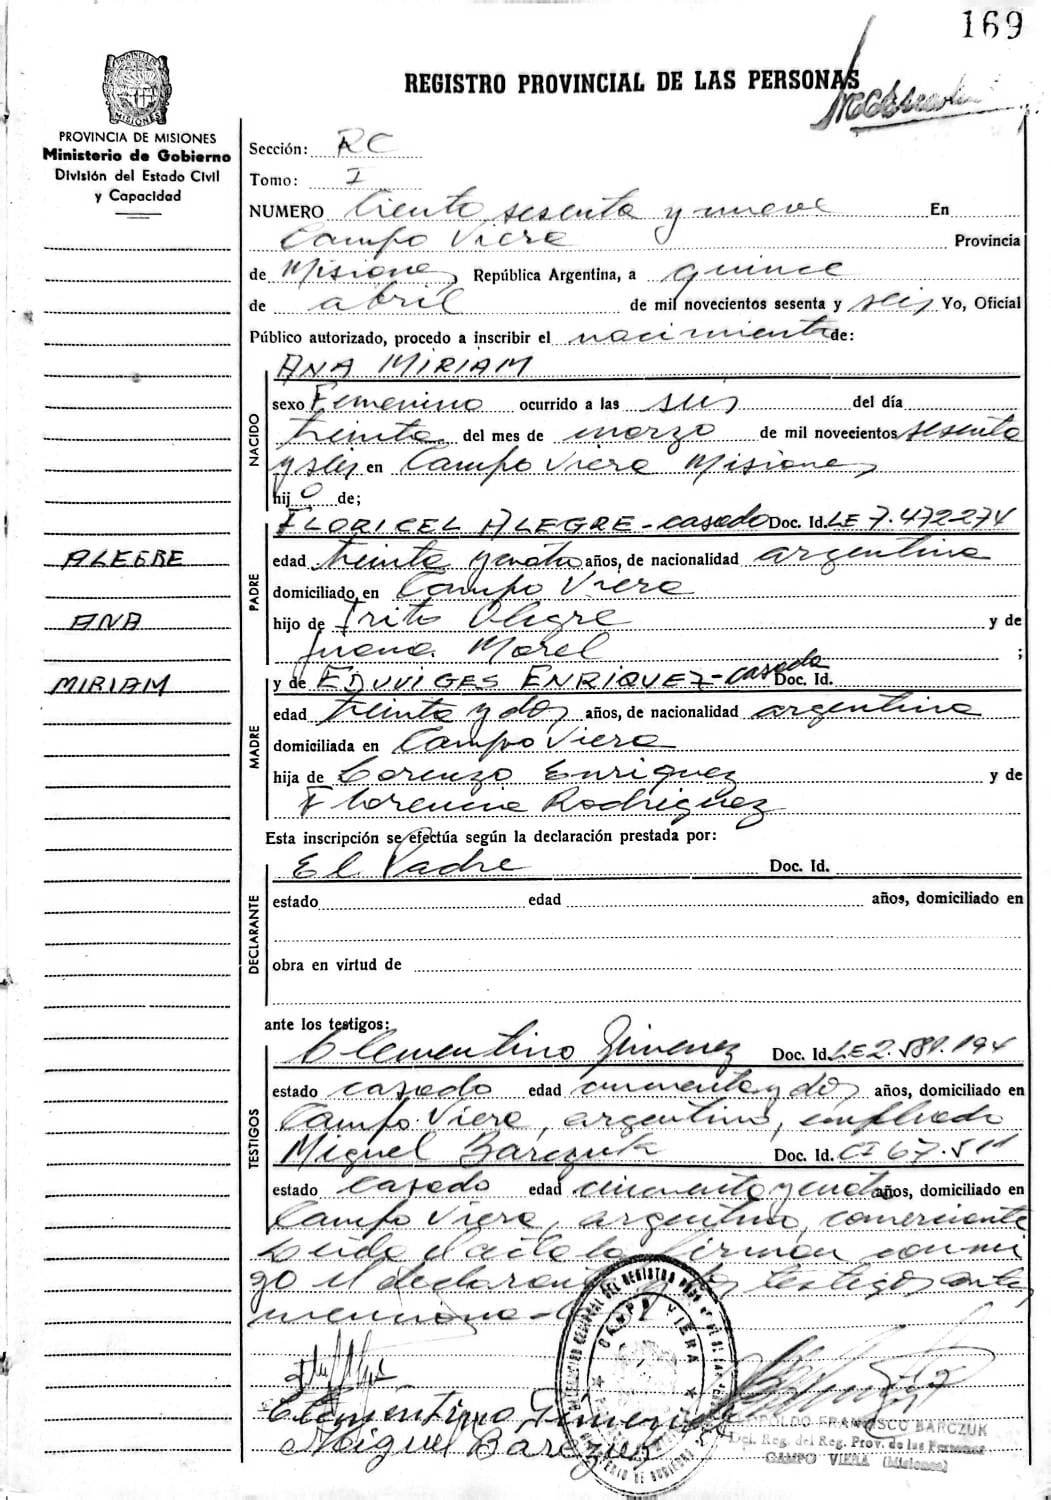 169
REGISTRO PROVINCIAL DE LAS PERSONAS
PROVINCIA DE MISIONES
Ministerio de Gobierno
División del Estado Civil
y Capacidad
Sección: RC
Tomo: I
NUMERO Ciento sesenta y nueve En
Campo Viera Provincia
de Misiones República Argentina, a quince
de abril de mil novecientos sesenta y seis Yo, Oficial
Público autorizado, procedo a inscribir el nacimiento de:
NACIDO
ANA MIRIAM
sexo Femenino ocurrido a las seis del día
treinta del mes de marzo de mil novecientos sesenta
y seis en Campo Viera Misiones
hij a de;
ALEGRE
ANA
MIRIAM
PADRE
FLORICEL ALEGRE - casado Doc. Id. LE 7.472.274
edad treinta y cuatro años, de nacionalidad argentina
domiciliado en Campo Viera
hijo de Alegre y de
Juana Morel ;
MADRE
y de EDUVIGES ENRIQUEZ - casada Doc. Id.
edad treinta y dos años, de nacionalidad argentina
domiciliada en Campo Viera
hija de Lorenzo Enriquez y de
Florencia Rodriguez
Esta inscripción se efectúa según la declaración prestada por:
DECLARANTE
El Padre Doc. Id.
estado edad años, domiciliado en
obra en virtud de
ante los testigos:
TESTIGOS
Clementino Jimenez Doc. Id. LE 2.581.194
estado casado edad cincuenta y dos años, domiciliado en
Campo Viera, argentino, empleado
Miguel Barczuk Doc. Id. CI 67.511
estado casado edad cincuenta y cuatro años, domiciliado en
Campo Viera, argentino, comerciante
Leida el acta la firman conmi
go el declarante y los testigos antes
menciona-
CAMPO VIERA
Clementino Jimenez
Miguel Barczuk
LEOPOLDO FRANCISCO BARCZUK
Del. Reg. del Reg. Prov. de las Personas
CAMPO VIERA (Misiones)